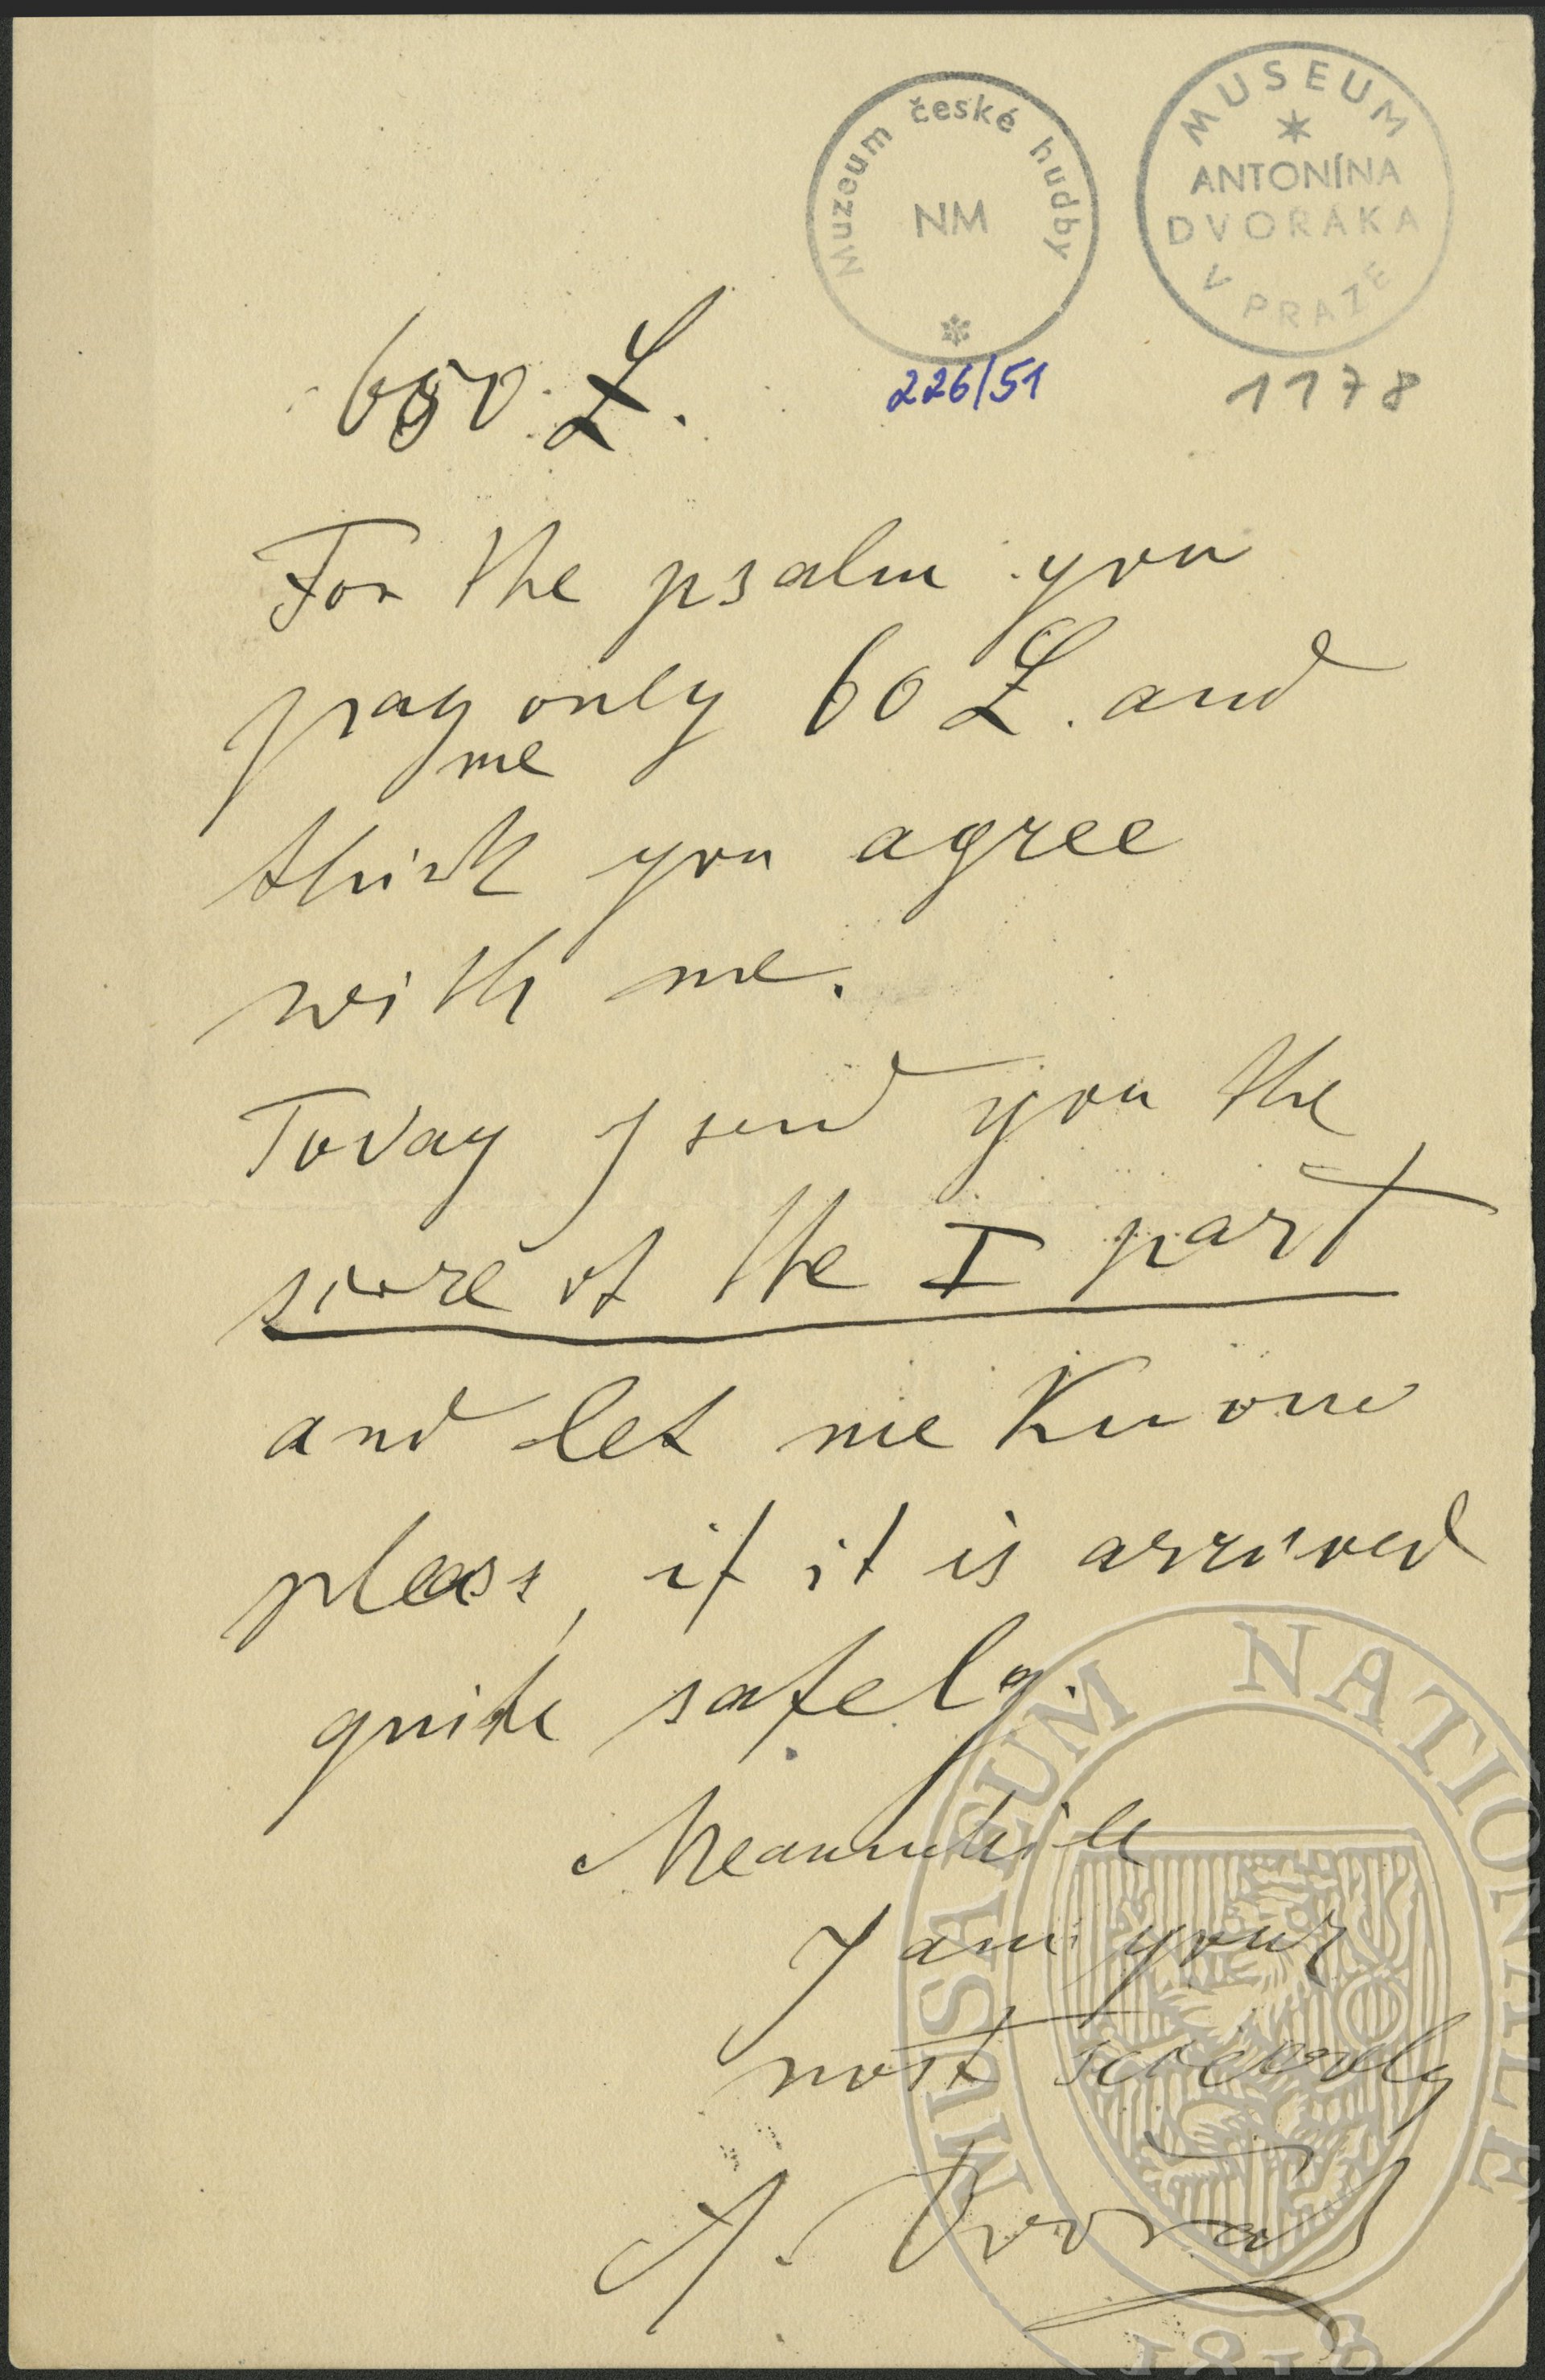 Muzeum české hudby
NM
MUSEUM
ANTONÍNA
DVOŘÁKA
V PRAZE
226/51
1178
650 £.
For the psalm you
pay only 60 £. and
me
think you agree
with me.
Today I send you the
score of the I part
and let me know
please, if it is arrived
quite safely.
Meanwhile
I am your
most sincerely
A. Dvořák
MUSAEUM NATIONALE
1818